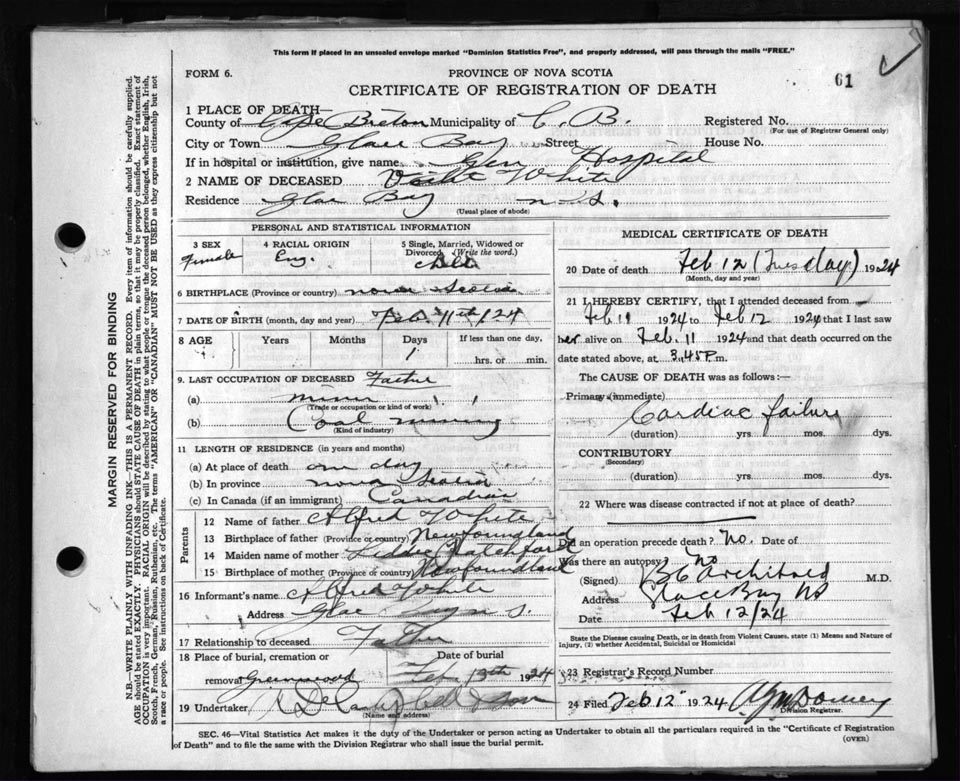 This form if placed in an unsealed envelope marked "Dominion Statistics Free", and properly addressed, will pass through the mails "FREE."
FORM 6.
PROVINCE OF NOVA SCOTIA
61
CERTIFICATE OF REGISTRATION OF DEATH
1 PLACE OF DEATH—
County of Cape Breton Municipality of C. B. Registered No.
(For use of Registrar General only)
City or Town Glace Bay Street House No.
If in hospital or institution, give name Glen Hospital
2 NAME OF DECEASED White
Residence Glace Bay N.S.
(Usual place of abode)
PERSONAL AND STATISTICAL INFORMATION
3 SEX 4 RACIAL ORIGIN 5 Single, Married, Widowed or Divorced (Write the word.)
Female Eng. Child
6 BIRTHPLACE (Province or country) Nova Scotia
7 DATE OF BIRTH (month, day and year) Feb. 11th 1924
8 AGE Years Months Days If less than one day,
1 hrs. or min.
9. LAST OCCUPATION OF DECEASED Father
(a) miner
(Trade or occupation or kind of work)
(b) Coal mining
(Kind of industry)
11 LENGTH OF RESIDENCE (in years and months)
(a) At place of death one day
(b) In province Nova Scotia
(c) In Canada (if an immigrant) Canadian
Parents
12 Name of father Alfred White
13 Birthplace of father (Province or country) Newfoundland
14 Maiden name of mother
15 Birthplace of mother (Province or country) Newfoundland
16 Informant's name Alfred White
Address Glace Bay N.S.
17 Relationship to deceased Father
18 Place of burial, cremation or removal Greenwood
Date of burial
Feb 13th 1924
19 Undertaker & Son
(Name and address)
MEDICAL CERTIFICATE OF DEATH
20 Date of death Feb 12 (Tuesday) 1924
(Month, day and year)
21 I HEREBY CERTIFY, that I attended deceased from
Feb 11 1924 to Feb 12 1924 that I last saw
her alive on Feb. 11 1924 and that death occurred on the
date stated above, at 3.45 P. m.
The CAUSE OF DEATH was as follows:—
Primary (immediate)
Cardiac failure
(duration) yrs. mos. dys.
CONTRIBUTORY
(Secondary)
(duration) yrs. mos. dys.
22 Where was disease contracted if not at place of death?
Did an operation precede death? No. Date of
Was there an autopsy? No
(Signed) Archibald M.D.
Address Glace Bay NS
Date Feb 12/24
State the Disease causing Death, or in death from Violent Causes. state (1) Means and Nature of Injury, (2) whether Accidental, Suicidal or Homicidal
23 Registrar's Record Number
24 Filed Feb 12" 1924
Division Registrar.
SEC. 46—Vital Statistics Act makes it the duty of the Undertaker or person acting as Undertaker to obtain all the particulars required in the "Certificate of Registration
of Death" and to file the same with the Division Registrar who shall issue the burial permit.
(OVER)
MARGIN RESERVED FOR BINDING
N.B.—WRITE PLAINLY WITH UNFADING INK—THIS IS A PERMANENT RECORD. Every item of information should be carefully supplied.
AGE should be stated EXACTLY. PHYSICIANS should STATE CAUSE OF DEATH in plain terms, so that it may be properly classified. Exact statement of
OCCUPATION is very important. RACIAL ORIGIN will be described by stating to what people or tongue the deceased person belonged, whether English, Irish,
Scotch, French, German, Russian, Ruthenian, etc. The terms "AMERICAN" or "CANADIAN" MUST NOT BE USED as they express citizenship but not
a race or people. See instructions on back of Certificate.